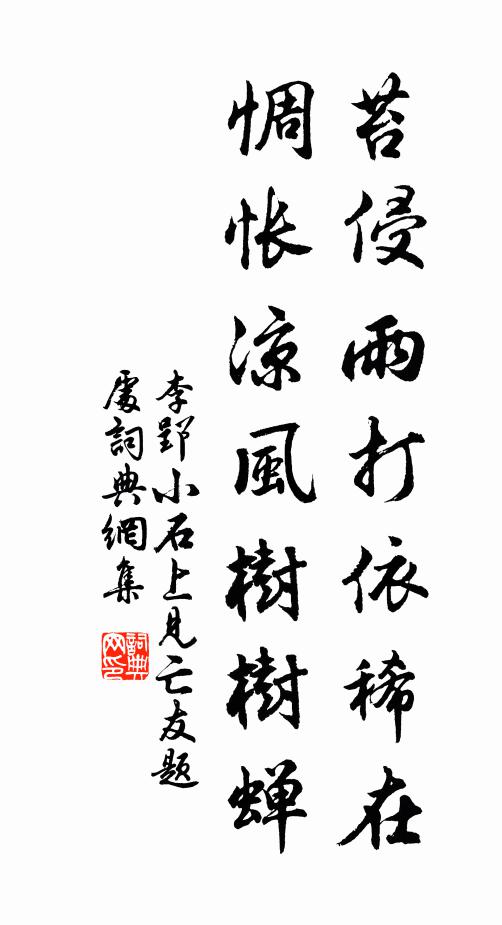 苔侵雨打依稀在
惆怅凉風樹樹蝉
李郢小石上見亡友題
處詞典網集
詞典
网印